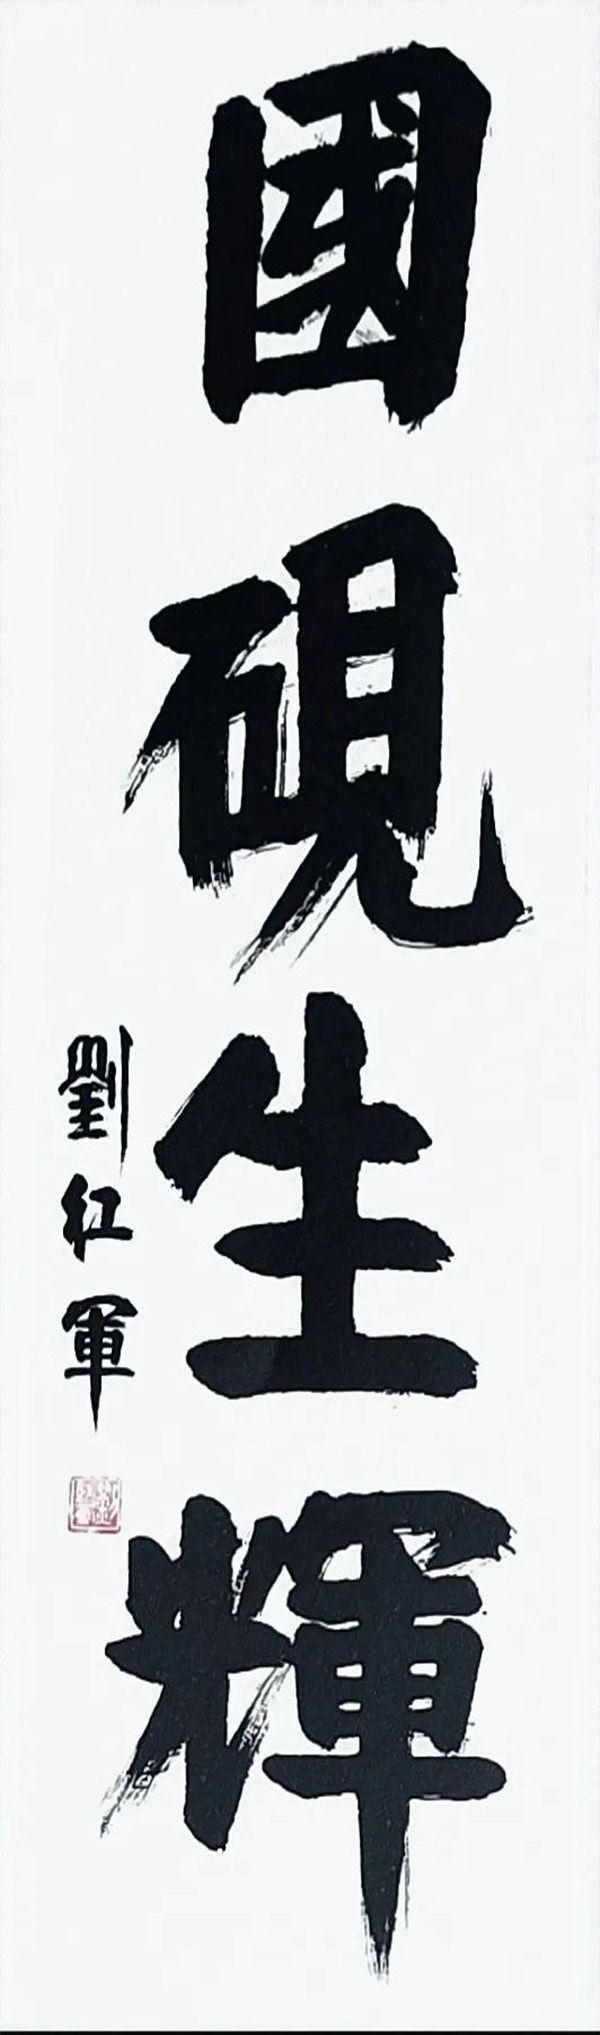 國硯生輝
劉红軍